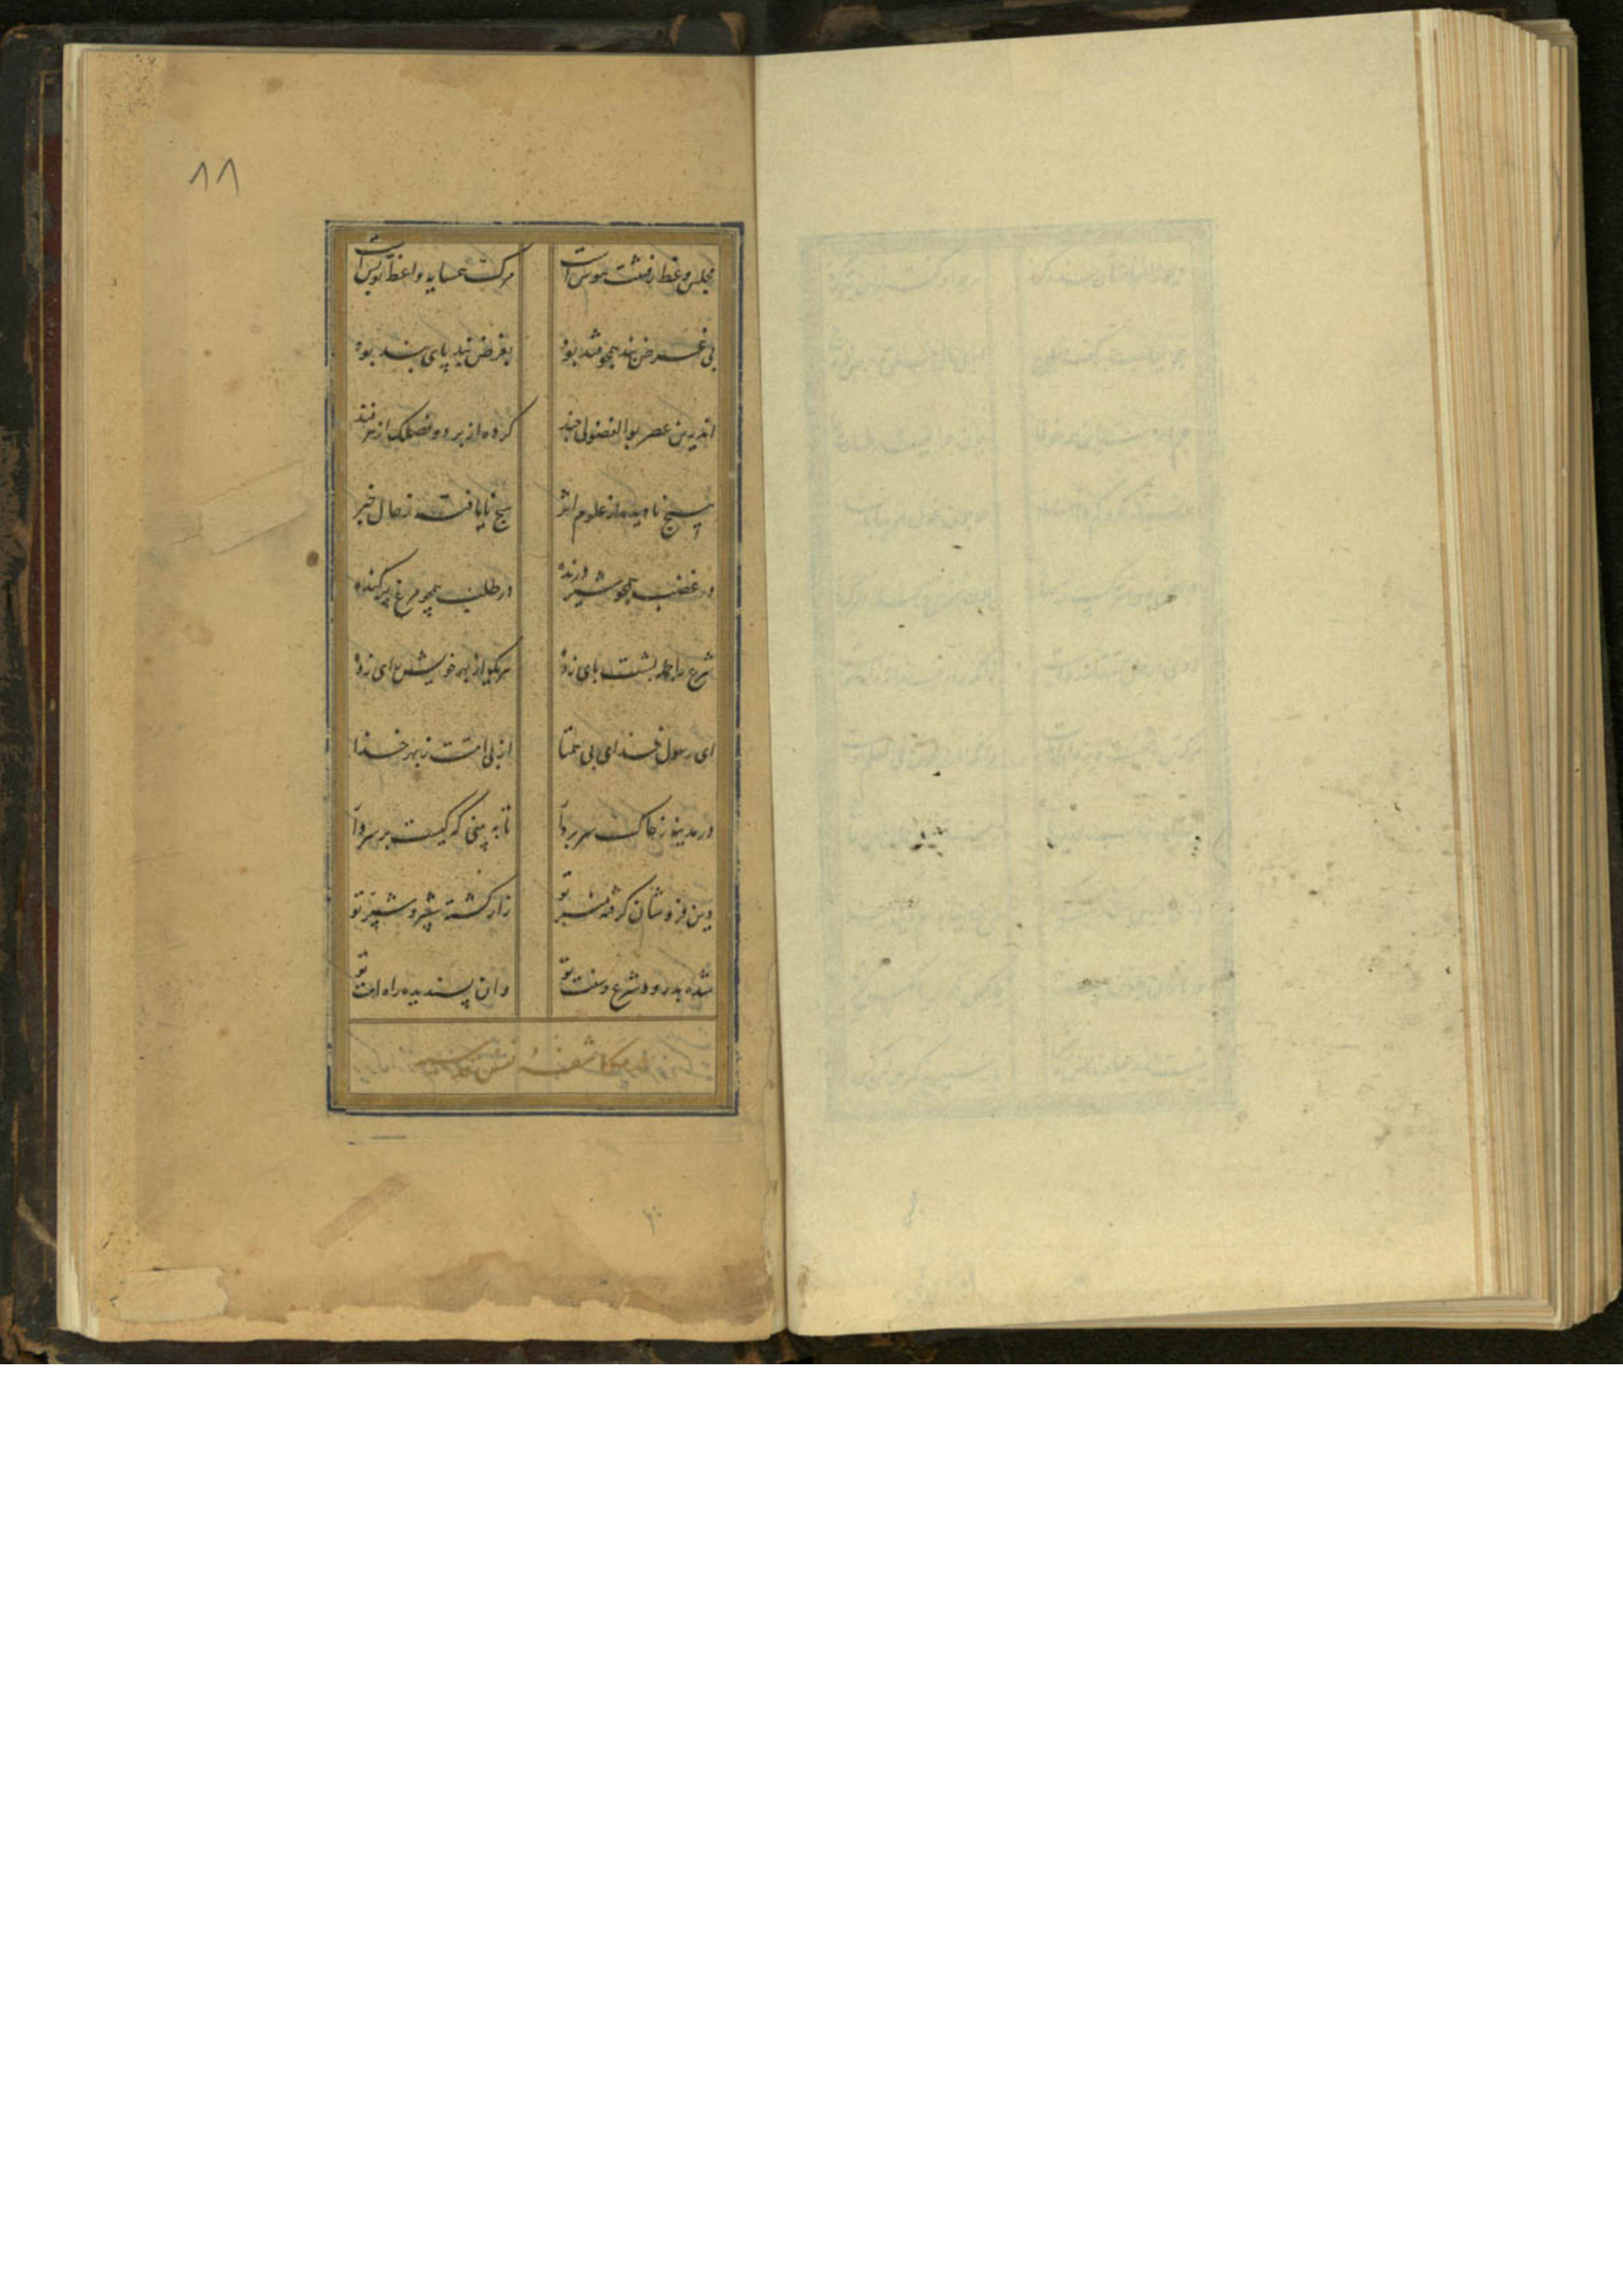 ۸۸
مجلس وعظ رفتنت هوس است مرگ همسایه واعظ تو بس است
بی غرض پند همچو قند بود بغرض پند پای بند بود
اندرین عصر بوالفضولی چند کرده از بر دو فصلک از ترفند
هیچ نادیده از علوم اثر هیچ نایافته ز حال خبر
در غضب همچو شیر درنده در طلب همچو مرغ پرکنده
شرع را جمله پشت پای زده هر یکی از بهر خویش رای زده
ای رسول خدای بی همتا از پی امتت ز بهر خدا
در مدینه ز خاک سر بردآ تا به بینی که کیست بر سر دآ
دین فروشان گرفته منبر تو زار گشته شبر و شبیر تو
شده بدرود شرع و سنت تو وان پسندیده راه امت تو